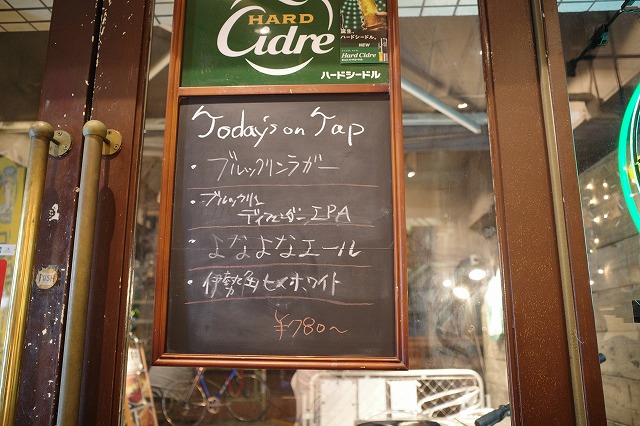 HARD
Cidre
誕生。
ハードシードル。
NEW
Hard Cidre
ハードシードル
Today's on Tap
・ブルックリンラガー
・ブルックリン
ディフェンダーIPA
・よなよなエール
・伊勢角ヒメホワイト
¥780～
PUSH